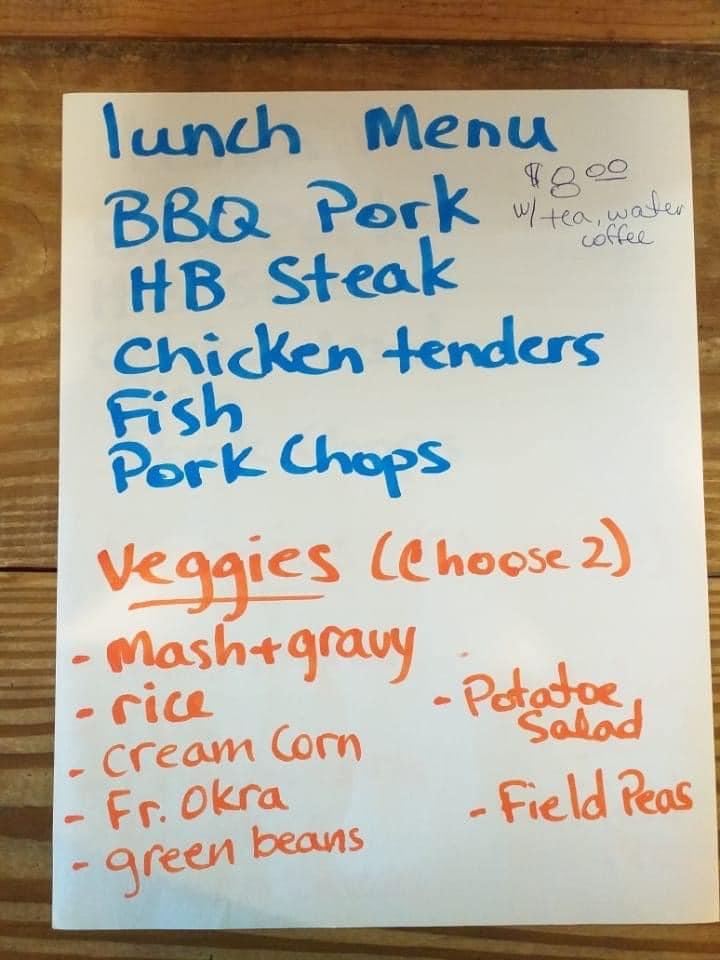 lunch Menu
$8.00
w/ tea, water
coffee
BBQ Pork
HB Steak
Chicken tenders
Fish
Pork Chops
Veggies (Choose 2)
- Mash + gravy
- rice
- Cream Corn
- Fr. Okra
- green beans
- Potatoe
Salad
- Field Peas